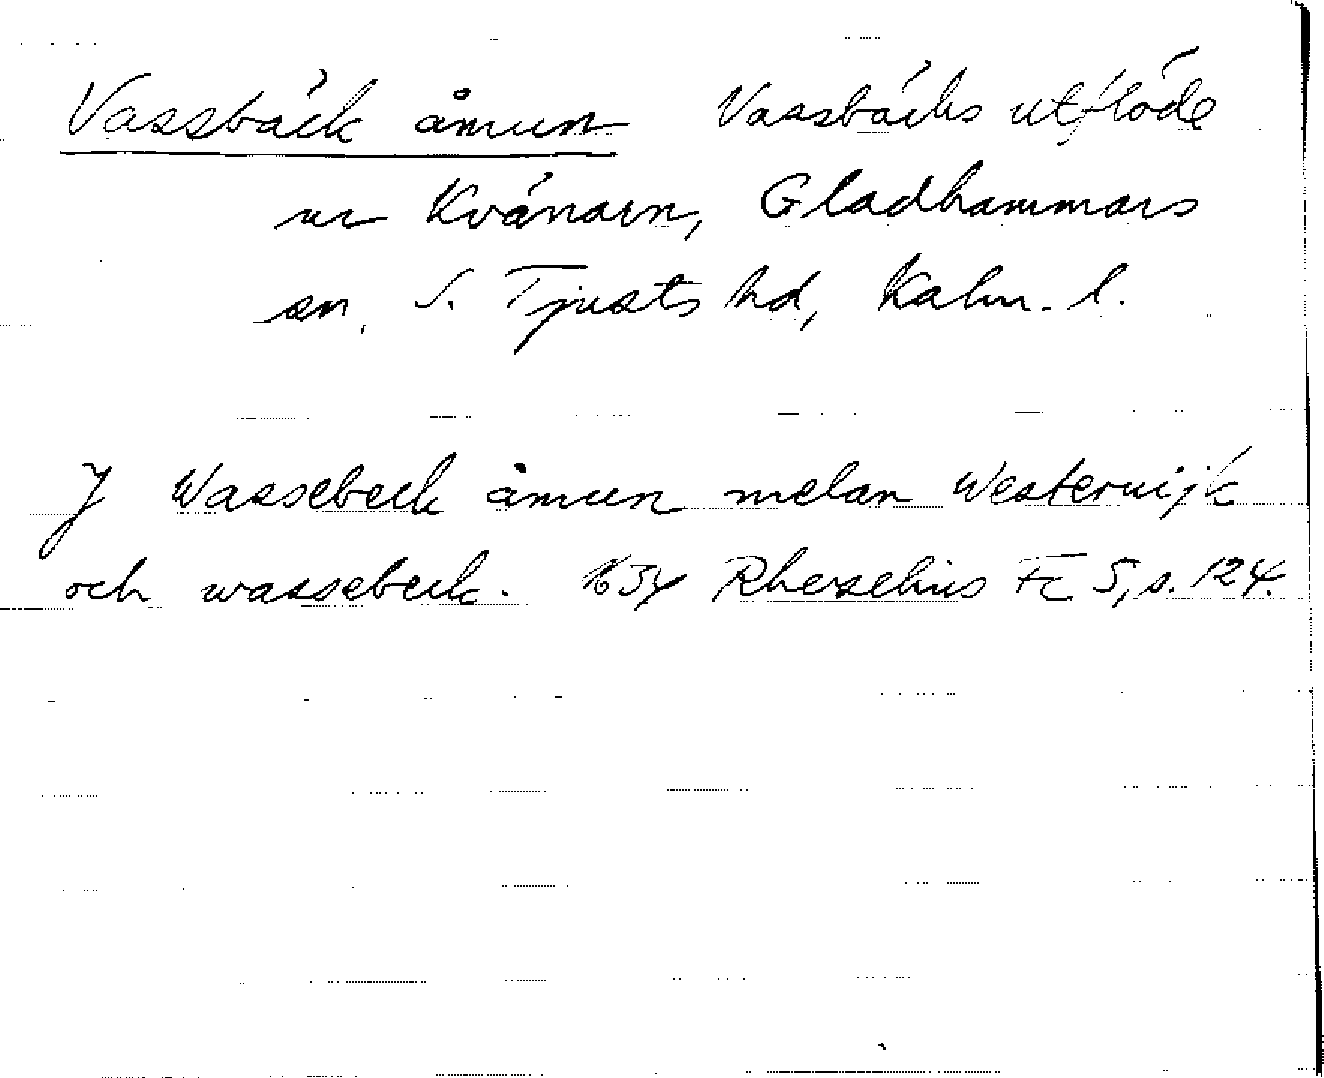 Vassbäck åmun Vassbäcks utflöde
ur Kvänarn, Gladhammars
sn, S. Tjusts hd, Kalm. l.
J Wassebeck åmun melan Westerwijk
och wassebeck. 1634 Rhezelius Fc 5, s. 124.